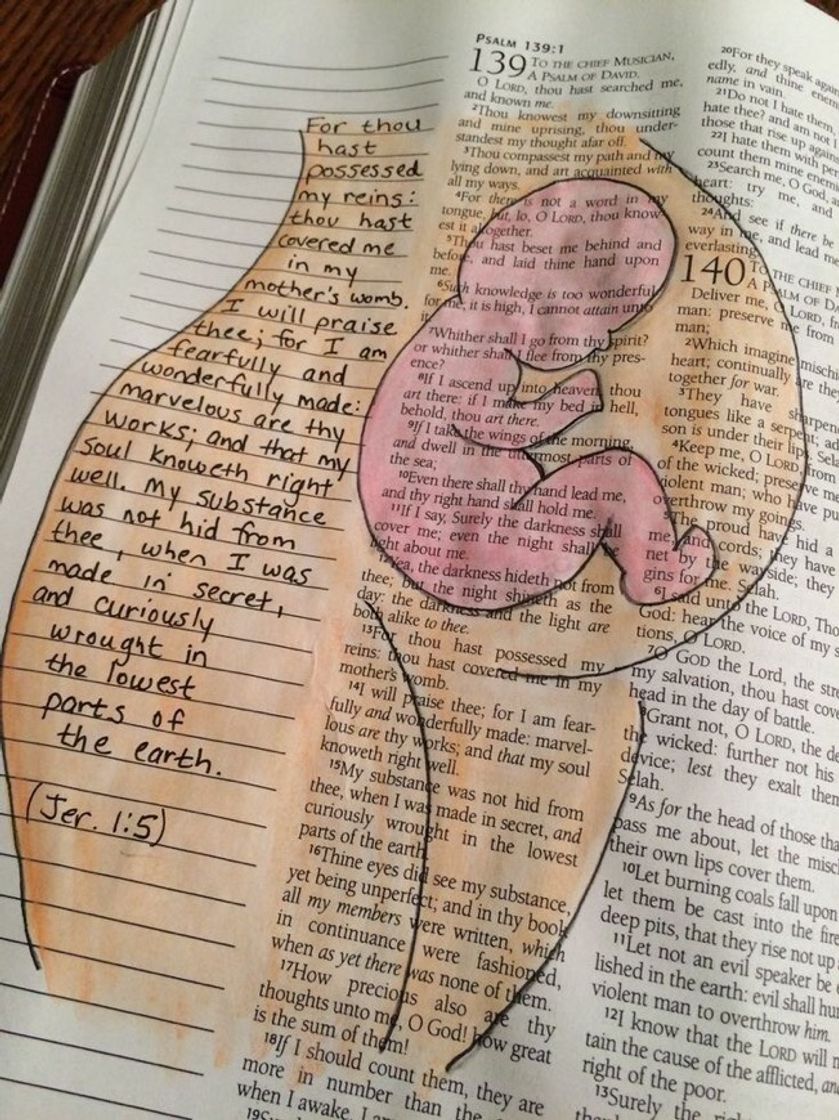 For thou
hast
possessed
my reins:
thou hast
covered me
in my
mother's womb.
I will praise
thee; for I am
fearfully and
wonderfully made:
marvelous are thy
works; and that my
soul knoweth right
well. My substance
was not hid from
thee, when I was
made in secret,
and curiously
wrought in
the lowest
parts of
the earth.
(Jer. 1:5)
PSALM 139:1
139 TO THE CHIEF MUSICIAN,
A PSALM OF DAVID.
O LORD, thou hast searched me,
and known me.
2Thou knowest my downsitting
and mine uprising, thou under-
standest my thought afar off.
3Thou compassest my path and my
lying down, and art acquainted with
all my ways.
4For there is not a word in my
tongue, but, lo, O LORD, thou know-
est it altogether.
5Thou hast beset me behind and
before, and laid thine hand upon
me.
6Such knowledge is too wonderful
for me; it is high, I cannot attain unto
it.
7Whither shall I go from thy spirit?
or whither shall I flee from thy pres-
ence?
8If I ascend up into heaven, thou
art there: if I make my bed in hell,
behold, thou art there.
9If I take the wings of the morning,
and dwell in the uttermost parts of
the sea;
10Even there shall thy hand lead me,
and thy right hand shall hold me.
11If I say, Surely the darkness shall
cover me; even the night shall be
light about me.
12Yea, the darkness hideth not from
thee; but the night shineth as the
day: the darkness and the light are
both alike to thee.
13For thou hast possessed my
reins: thou hast covered me in my
mother's womb.
14I will praise thee; for I am fear-
fully and wonderfully made: marvel-
lous are thy works; and that my soul
knoweth right well.
15My substance was not hid from
thee, when I was made in secret, and
curiously wrought in the lowest
parts of the earth.
16Thine eyes did see my substance,
yet being unperfect; and in thy book
all my members were written, which
in continuance were fashioned,
when as yet there was none of them.
17How precious also are thy
thoughts unto me, O God! how great
is the sum of them!
18If I should count them, they are
more in number than the
when I awake, I am
20For they speak again
edly, and thine ene
name in vain.
21Do not I hate them
hate thee? and am not I
those that rise up again
22I hate them with per
count them mine ene
23Search me, O God, a
heart: try me, and
thoughts:
24And see if there be
way in me, and lead me
everlasting.
140 TO THE CHIEF M
A PSALM OF DA
Deliver me, O LORD, fr
man: preserve me from
man;
2Which imagine mischi
heart; continually are they
together for war.
3They have sharpene
tongues like a serpent; ad
son is under their lips. Sela
4Keep me, O LORD, from
of the wicked; preserve me
violent man; who have pu
overthrow my goings.
5The proud have hid a
me, and cords; they have
net by the wayside; they
gins for me. Selah.
6I said unto the LORD, Tho
God: hear the voice of my s
tions, O LORD.
7O GOD the Lord, the str
my salvation, thou hast cove
head in the day of battle.
8Grant not, O LORD, the de
the wicked: further not his
device; lest they exalt them
Selah.
9As for the head of those tha
pass me about, let the misc
their own lips cover them.
10Let burning coals fall upon
let them be cast into the fire
deep pits, that they rise not up
11Let not an evil speaker be e
lished in the earth: evil shall hu
violent man to overthrow him.
12I know that the LORD will m
tain the cause of the afflicted, an
right of the poor.
13Surely the rig